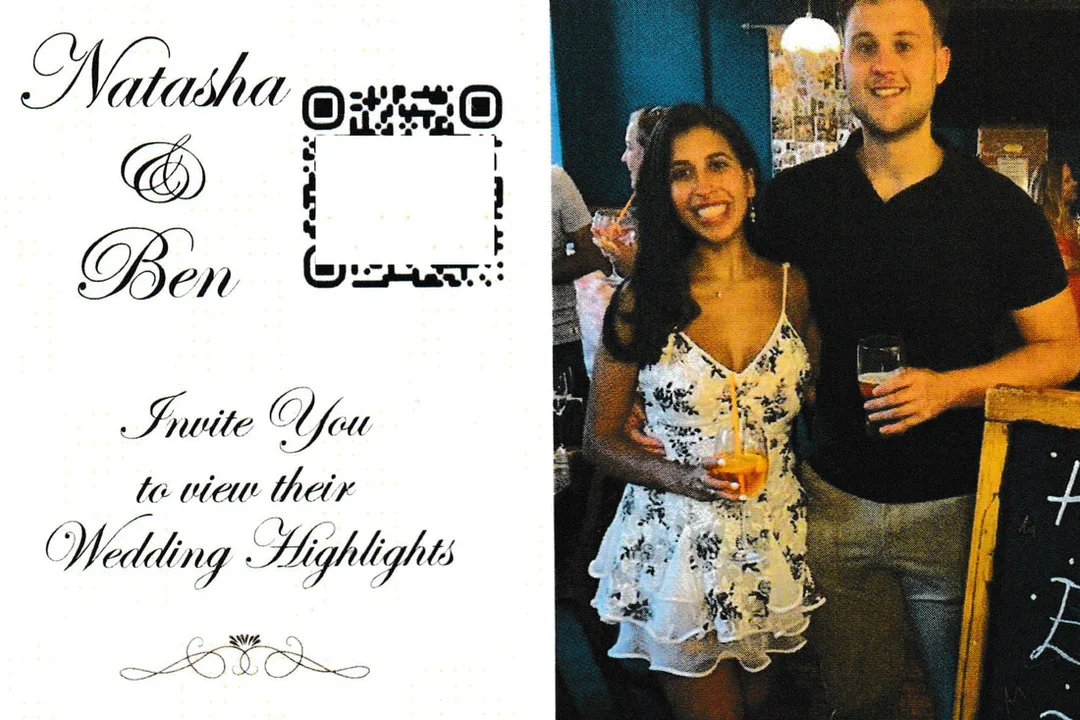 Natasha
&
Ben
Invite You
to view their
Wedding Highlights